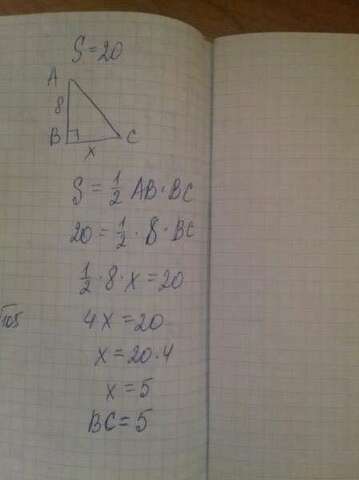 S=20
A
8
B
C
x
S = 1/2 AB · BC
20 = 1/2 · 8 · BC
1/2 · 8 · x = 20
4x = 20
x = 20·4
x = 5
BC = 5